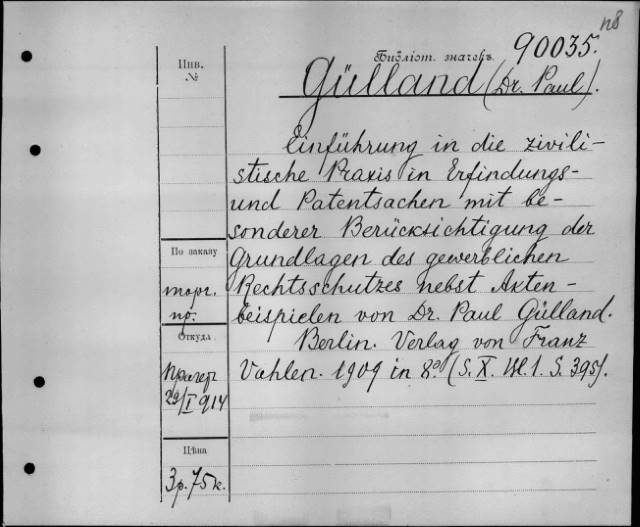 n8
Библіот. значекъ 90035.
Инв.
№
Gülland (Dr. Paul).
Einführung in die zivili-
stische Praxis in Erfindungs-
und Patentsachen mit be-
sonderer Berücksichtigung der
Grundlagen des gewerblichen
Rechtsschutzes nebst Akten-
beispielen von Dr. Paul Gülland.
Berlin. Verlag von Franz
Vahlen. 1909 in 8º. (S. X. Bl. 1. S. 395).
По заказу
торг.
пр.
Откуда
Прагер
29/I 914
Цѣна
3 р. 75 к.